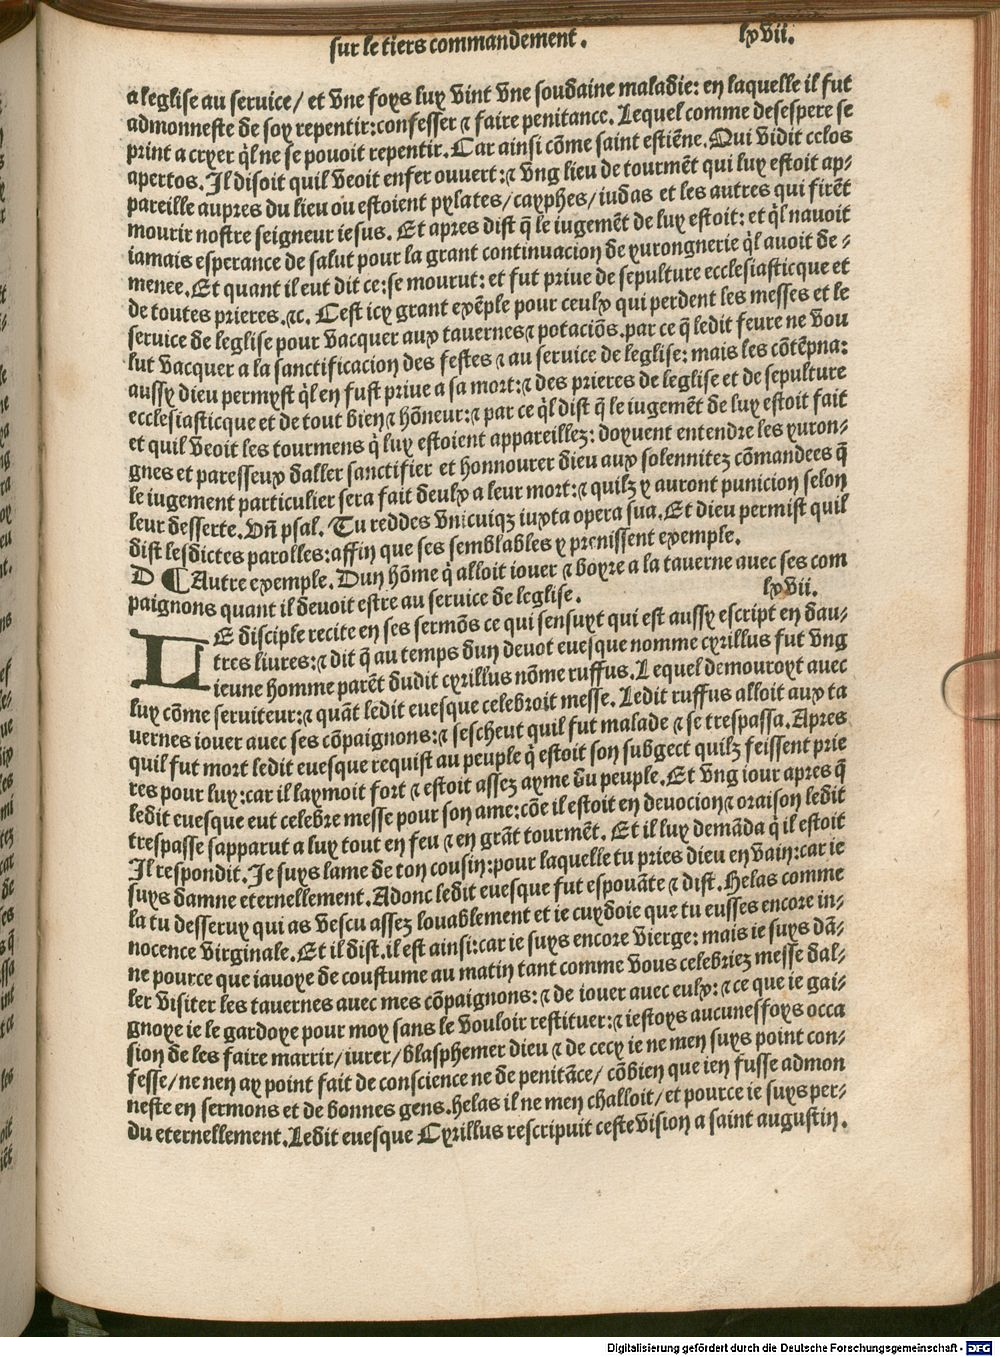 sur le tiers commandement. lxvii.
a leglise au seruice/ et vne foys luy vint vne soudaine maladie: en laquelle il fut
admonneste de soy repentir:confesser ⁊ faire penitance. Lequel comme desespere se
print a cryer q̃l ne se pouoit repentir. Car ainsi cõme saint estiẽne. Qui vidit celos
apertos. Il disoit quil veoit enfer ouuert:⁊ vng lieu de tourmẽt qui luy estoit ap⸗
pareille aupres du lieu ou estoient pylates/cayphes/iudas et les autres qui firẽt
mourir nostre seigneur iesus. Et apres dist q̃ le iugemẽt de luy estoit: et q̃l nauoit
iamais esperance de salut pour la grant continuacion de yurongnerie q̃l auoit de⸗
menee. Et quant il eut dit ce:se mourut: et fut priue de sepulture ecclesiasticque et
de toutes prieres.⁊c. Cest icy grant exẽple pour ceulx qui perdent les messes et le
seruice de leglise pour vacquer aux tauernes⁊ potaciõs.par ce q̃ ledit feure ne vou
lut vacquer a la sanctificacion des festes ⁊ au seruice de leglise: mais les cõtẽpna:
aussy dieu permyst q̃l en fust priue a sa mort:⁊ des prieres de leglise et de sepulture
ecclesiasticque et de tout bien⁊ hõneur:⁊ par ce q̃l dist q̃ le iugemẽt de luy estoit fait
et quil veoit les tourmens q̃ luy estoient appareillez: doyuent entendre les yuron⸗
gnes et paresseux daller sanctifier et honnourer dieu aux solennitez cõmandees q̃
le iugement particulier sera fait deulx a leur mort:⁊ quilz y auront punicion selon
leur desserte. Vñ psal. Tu reddes vnicuiqꝫ iuxta opera sua. Et dieu permist quil
dist lesdictes parolles:affin que ses semblables y prenissent exemple.
D ¶Autre exemple. Dun hõme q̃ alloit iouer ⁊ boyre a la tauerne auec ses com
paignons quant il deuoit estre au seruice de leglise. lxvii.
LE disciple recite en ses sermõs ce qui sensuyt qui est aussy escript en dau⸗
tres liures:⁊ dit q̃ au temps dun deuot euesque nomme cyrillus fut vng
ieune homme parẽt dudit cyrillus nõme ruffus. Lequel demouroyt auec
luy cõme seruiteur:⁊ quãt ledit euesque celebroit messe. Ledit ruffus alloit aux ta
uernes iouer auec ses cõpaignons:⁊ sescheut quil fut malade ⁊ se trespassa. Apres
quil fut mort ledit euesque requist au peuple q̃ estoit son subgect quilz feissent prie
res pour luy:car il laymoit fort ⁊ estoit assez ayme du peuple. Et vng iour apres q̃
ledit euesque eut celebre messe pour son ame:cõe il estoit en deuocion⁊ oraison ledit
trespasse sapparut a luy tout en feu ⁊ en grãt tourmẽt. Et il luy demãda q̃ il estoit
Il respondit. Je suys lame de ton cousin:pour laquelle tu pries dieu en vain:car ie
suys damne eternellement. Adonc ledit euesque fut espouãte ⁊ dist. Helas comme
la tu desseruy qui as vescu assez louablement et ie cuydoie que tu eusses encore in⸗
nocence virginale. Et il dist. il est ainsi:car ie suys encore vierge: mais ie suys dã⸗
ne pource que iauoye de coustume au matin tant comme vous celebriez messe dal⸗
ler visiter les tauernes auec mes cõpaignons:⁊ de iouer auec eulx:⁊ ce que ie gai⸗
gnoye ie le gardoye pour moy sans le vouloir restituer:⁊ iestoys aucunesfoys occa
sion de les faire marrir/iurer/blasphemer dieu ⁊ de cecy ie ne men suys point con⸗
fesse/ ne nen ay point fait de conscience ne de penitãce/ cõbien que ien fusse admon
neste en sermons et de bonnes gens.helas il ne men challoit/ et pource ie suys per⸗
du eternellement. Ledit euesque Cyrillus rescripuit ceste vision a saint augustin.
Digitalisierung gefördert durch die Deutsche Forschungsgemeinschaft - DFG